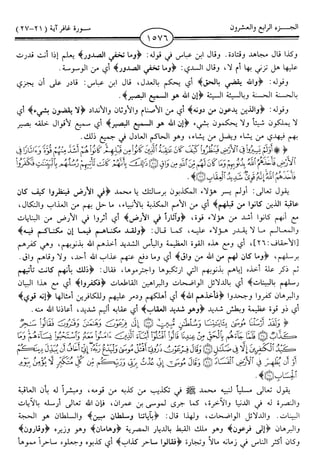 الجـــزء الرابع والعشرون
١٥٧٦
سورة غافر آية (٢١-٢٧)
وكذا قال مجاهد وقتادة. وقال ابن عباس في قوله: ﴿وما تخفي الصدور﴾ يعلم إذا أنت قدرت
عليها هل تزني بها أم لا، وقال السدي: ﴿وما تخفي الصدور﴾ أي من الوسوسة.
وقوله: ﴿والله يقضي بالحق﴾ أي يحكم بالعدل، قال ابن عباس: قادر على أن يجزي
بالحسنة الحسنة وبالسيئة السيئة ﴿إن الله هو السميع البصير﴾.
وقوله: ﴿والذين يدعون من دونه﴾ أي من الأصنام والأوثان والأنداد ﴿لا يقضون بشيء﴾ أي
لا يملكون شيئاً ولا يحكمون بشيء ﴿إن الله هو السميع البصير﴾ أي سميع لأقوال خلقه بصير
بهم فيهدي من يشاء ويضل من يشاء، وهو الحاكم العادل في جميع ذلك.
﴿ أولم يسيروا في الأرض فينظروا كيف كان عاقبة الذين كانوا من قبلهم كانوا هم أشد منهم قوة وءاثارا في
الأرض فأخذهم الله بذنوبهم وما كان لهم من الله من واق ذلك بأنهم كانت تأتيهم رسلهم بالبينات فكفروا فأخذهم الله إنه قوي
شديد العقاب ﴾
يقول تعالى: أولم يسر هؤلاء المكذبون برسالتك يا محمد ﴿في الأرض فينظروا كيف كان
عاقبة الذين كانوا من قبلهم﴾ أي من الأمم المكذبة بالأنبياء، ما حل بهم من العذاب والنكال،
مع أنهم كانوا أشد من هؤلاء قوة، ﴿وآثاراً في الأرض﴾ أي أثروا في الأرض من البنايات
والمعالم ما لا يقدر هؤلاء عليه، كما قال: ﴿ولقد مكناهم فيما إن مكناكم فيه﴾
[الأحقاف: ٢٦]، أي ومع هذه القوة العظيمة والبأس الشديد أخذهم الله بذنوبهم، وهي كفرهم
برسلهم، ﴿وما كان لهم من الله من واق﴾ أي وما دفع عنهم عذاب الله أحد، ولا وقاهم واق.
ثم ذكر علة أخذه إياهم بذنوبهم التي ارتكبوها واجترموها، فقال: ﴿ذلك بأنهم كانت تأتيهم
رسلهم بالبينات﴾ أي بالدلائل الواضحات والبراهين القاطعات ﴿فكفروا﴾ أي مع هذا البيان
والبرهان كفروا وجحدوا ﴿فأخذهم الله﴾ أي أهلكهم ودمر عليهم وللكافرين أمثالها ﴿إنه قوي﴾
أي ذو قوة عظيمة وبطش شديد ﴿وهو شديد العقاب﴾ أي عقابه أليم شديد، أعاذنا الله منه.
﴿ ولقد أرسلنا موسى بآياتنا وسلطان مبين إلى فرعون وهامان وقارون فقالوا ساحر
كذاب فلما جاءهم بالحق من عندنا قالوا اقتلوا أبناء الذين ءامنوا معه واستحيوا نساءهم وما
كيد الكافرين إلا في ضلال وقال فرعون ذروني أقتل موسى وليدع ربه إني أخاف أن يبدل دينكم
أو أن يظهر في الأرض الفساد وقال موسى إني عذت بربي وربكم من كل متكبر لا يؤمن بيوم
الحساب ﴾
يقول تعالى مسلياً لنبيه محمد ﷺ في تكذيب من كذبه من قومه، ومبشراً له بأن العاقبة
والنصرة له في الدنيا والآخرة، كما جرى لموسى بن عمران، فإن الله تعالى أرسله بالآيات
البينات. والدلائل الواضحات، ولهذا قال: ﴿بآياتنا وسلطان مبين﴾ والسلطان هو الحجة
والبرهان ﴿إلى فرعون﴾ وهو ملك القبط بالديار المصرية ﴿وهامان﴾ وهو وزيره ﴿وقارون﴾
وكان أكثر الناس في زمانه مالاً وتجارة ﴿فقالوا ساحر كذاب﴾ أي كذبوه وجعلوه ساحراً مموهاً